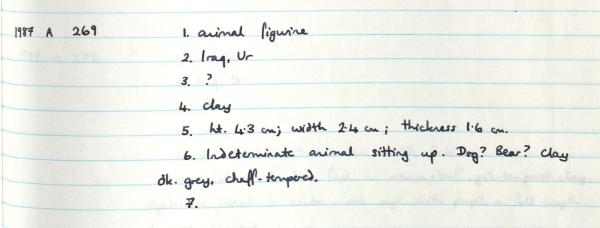 1987 A 269 1. animal figurine
2. Iraq, Ur
3. ?
4. clay
5. ht. 4.3 cm; width 2.4 cm; thickness 1.6 cm.
6. Indeterminate animal sitting up. Dog? Bear? Clay
dk. grey, chaff-tempered.
7.